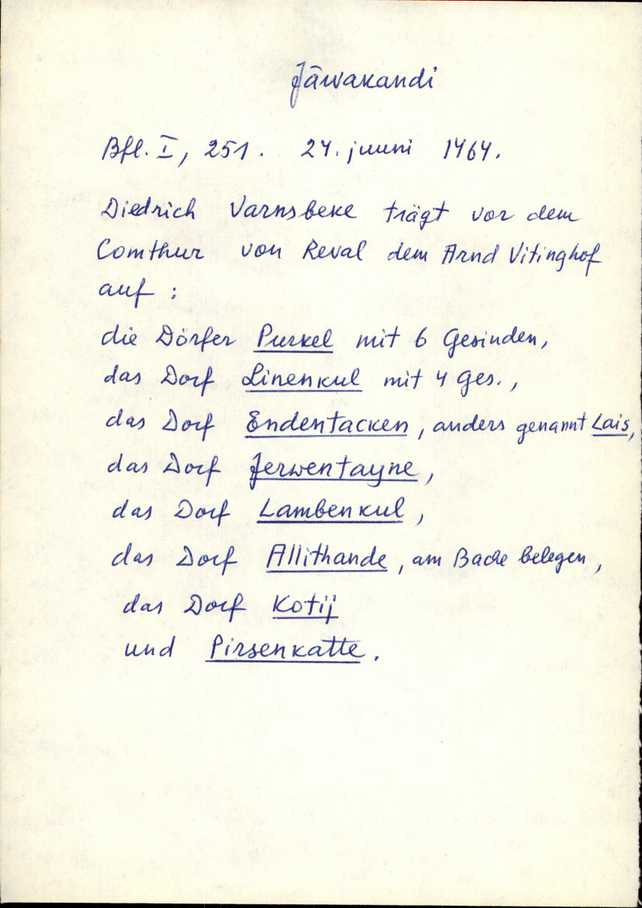 Jäwakandi
Bfl. I, 251. 24. juuni 1464.
Diedrich Varnsbeke trägt vor dem
Comthur von Reval dem Arnd Vitinghof
auf :
die Dörfer Purkel mit 6 Gesinden,
das Dorf Linenkul mit 4 Ges.,
das Dorf Endentacken, anders genannt Lais,
das Dorf Jerwentayne,
das Dorf Lambenkul,
das Dorf Allithande, am Bache belegen,
das Dorf Kotij
und Pirsenkatte.